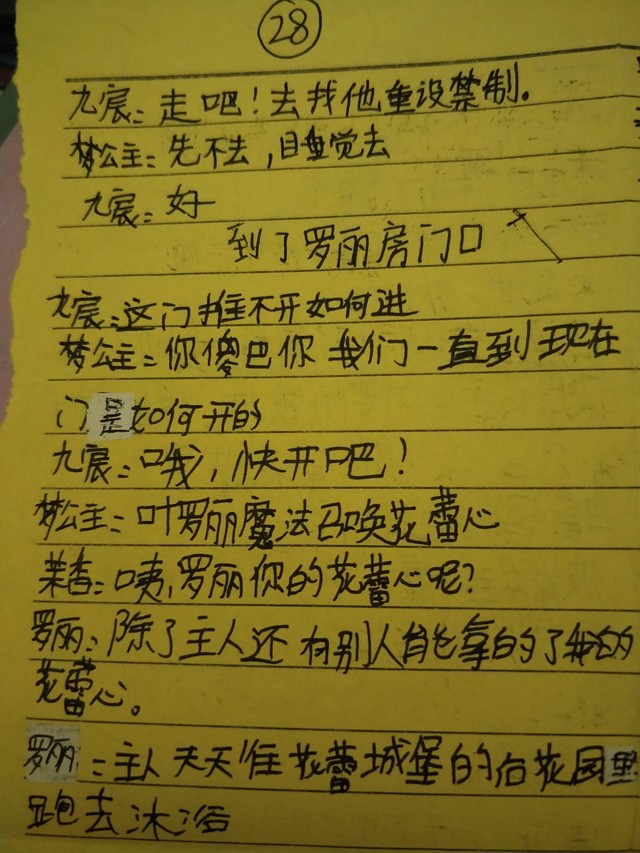 28
九宸：走吧！去找他重设禁制。
梦公主：先不去，睡觉去
九宸：好
到了罗丽房门口
九宸：这门推不开如何进
梦公主：你傻巴你 我们一直到现在
门是如何开的
九宸：哦，快开吧！
梦公主：叶罗丽魔法召唤花蕾心
茉香：咦，罗丽你的花蕾心呢？
罗丽：除了主人还有别人能拿的了我的
花蕾心。
罗丽：主人天天往花蕾城堡的后花园里
跑去沐浴